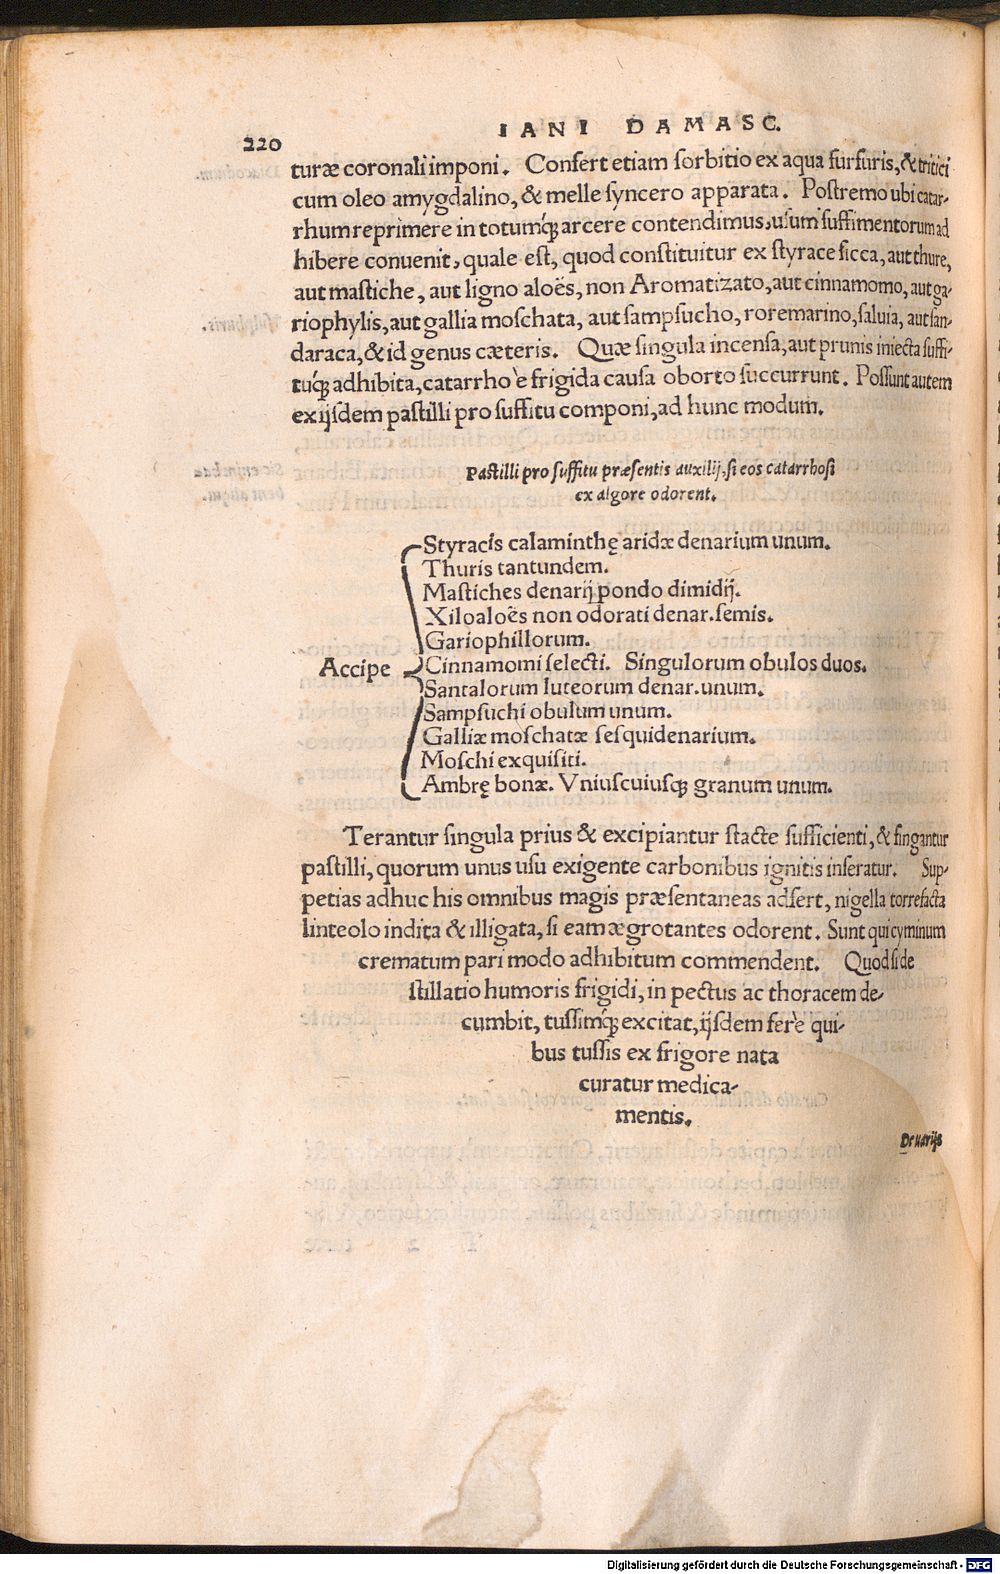 220
IANI DAMASC.
turæ coronali imponi. Confert etiam sorbitio ex aqua furfuris, & tritici
cum oleo amygdalino, & melle syncero apparata. Postremo ubi catar-
rhum reprimere in totumq́; arcere contendimus, usum suffimentorum ad
hibere convenit, quale est, quod constituitur ex styrace sicca, aut thure,
aut mastiche, aut ligno aloës, non Aromatizato, aut cinnamomo, aut ga-
riophylis, aut gallia moschata, aut sampsucho, roremarino, saluia, aut san-
daraca, & id genus cæteris. Quæ singula incensa, aut prunis iniecta suffi-
tuq́; adhibita, catarrho è frigida causa oborto succurrunt. Possunt autem
ex ijsdem pastilli pro suffitu componi, ad hunc modum.
Pastilli pro suffitu præsentis auxilij, si eos catarrhosi
ex algore odorent.
Styracis calaminthę aridæ denarium unum.
Thuris tantundem.
Mastiches denarij pondo dimidij.
Xiloaloës non odorati denar. semis.
Gariophillorum.
Accipe Cinnamomi selecti. Singulorum obulos duos.
Santalorum luteorum denar. unum.
Sampsuchi obulum unum.
Galliæ moschatæ sesquidenarium.
Moschi exquisiti.
Ambrę bonæ. Vniuscuiusq; granum unum.
Terantur singula prius & excipiantur stacte sufficienti, & fingantur
pastilli, quorum unus usu exigente carbonibus ignitis inseratur. Sup-
petias adhuc his omnibus magis præsentaneas adfert, nigella torrefacta
linteolo indita & illigata, si eam ægrotantes odorent. Sunt qui cyminum
crematum pari modo adhibitum commendent. Quod si de
stillatio humoris frigidi, in pectus ac thoracem de-
cumbit, tussimq́; excitat, ijsdem ferè qui-
bus tussis ex frigore nata
curatur medica-
mentis.
De uarijs
Digitalisierung gefördert durch die Deutsche Forschungsgemeinschaft - DFG